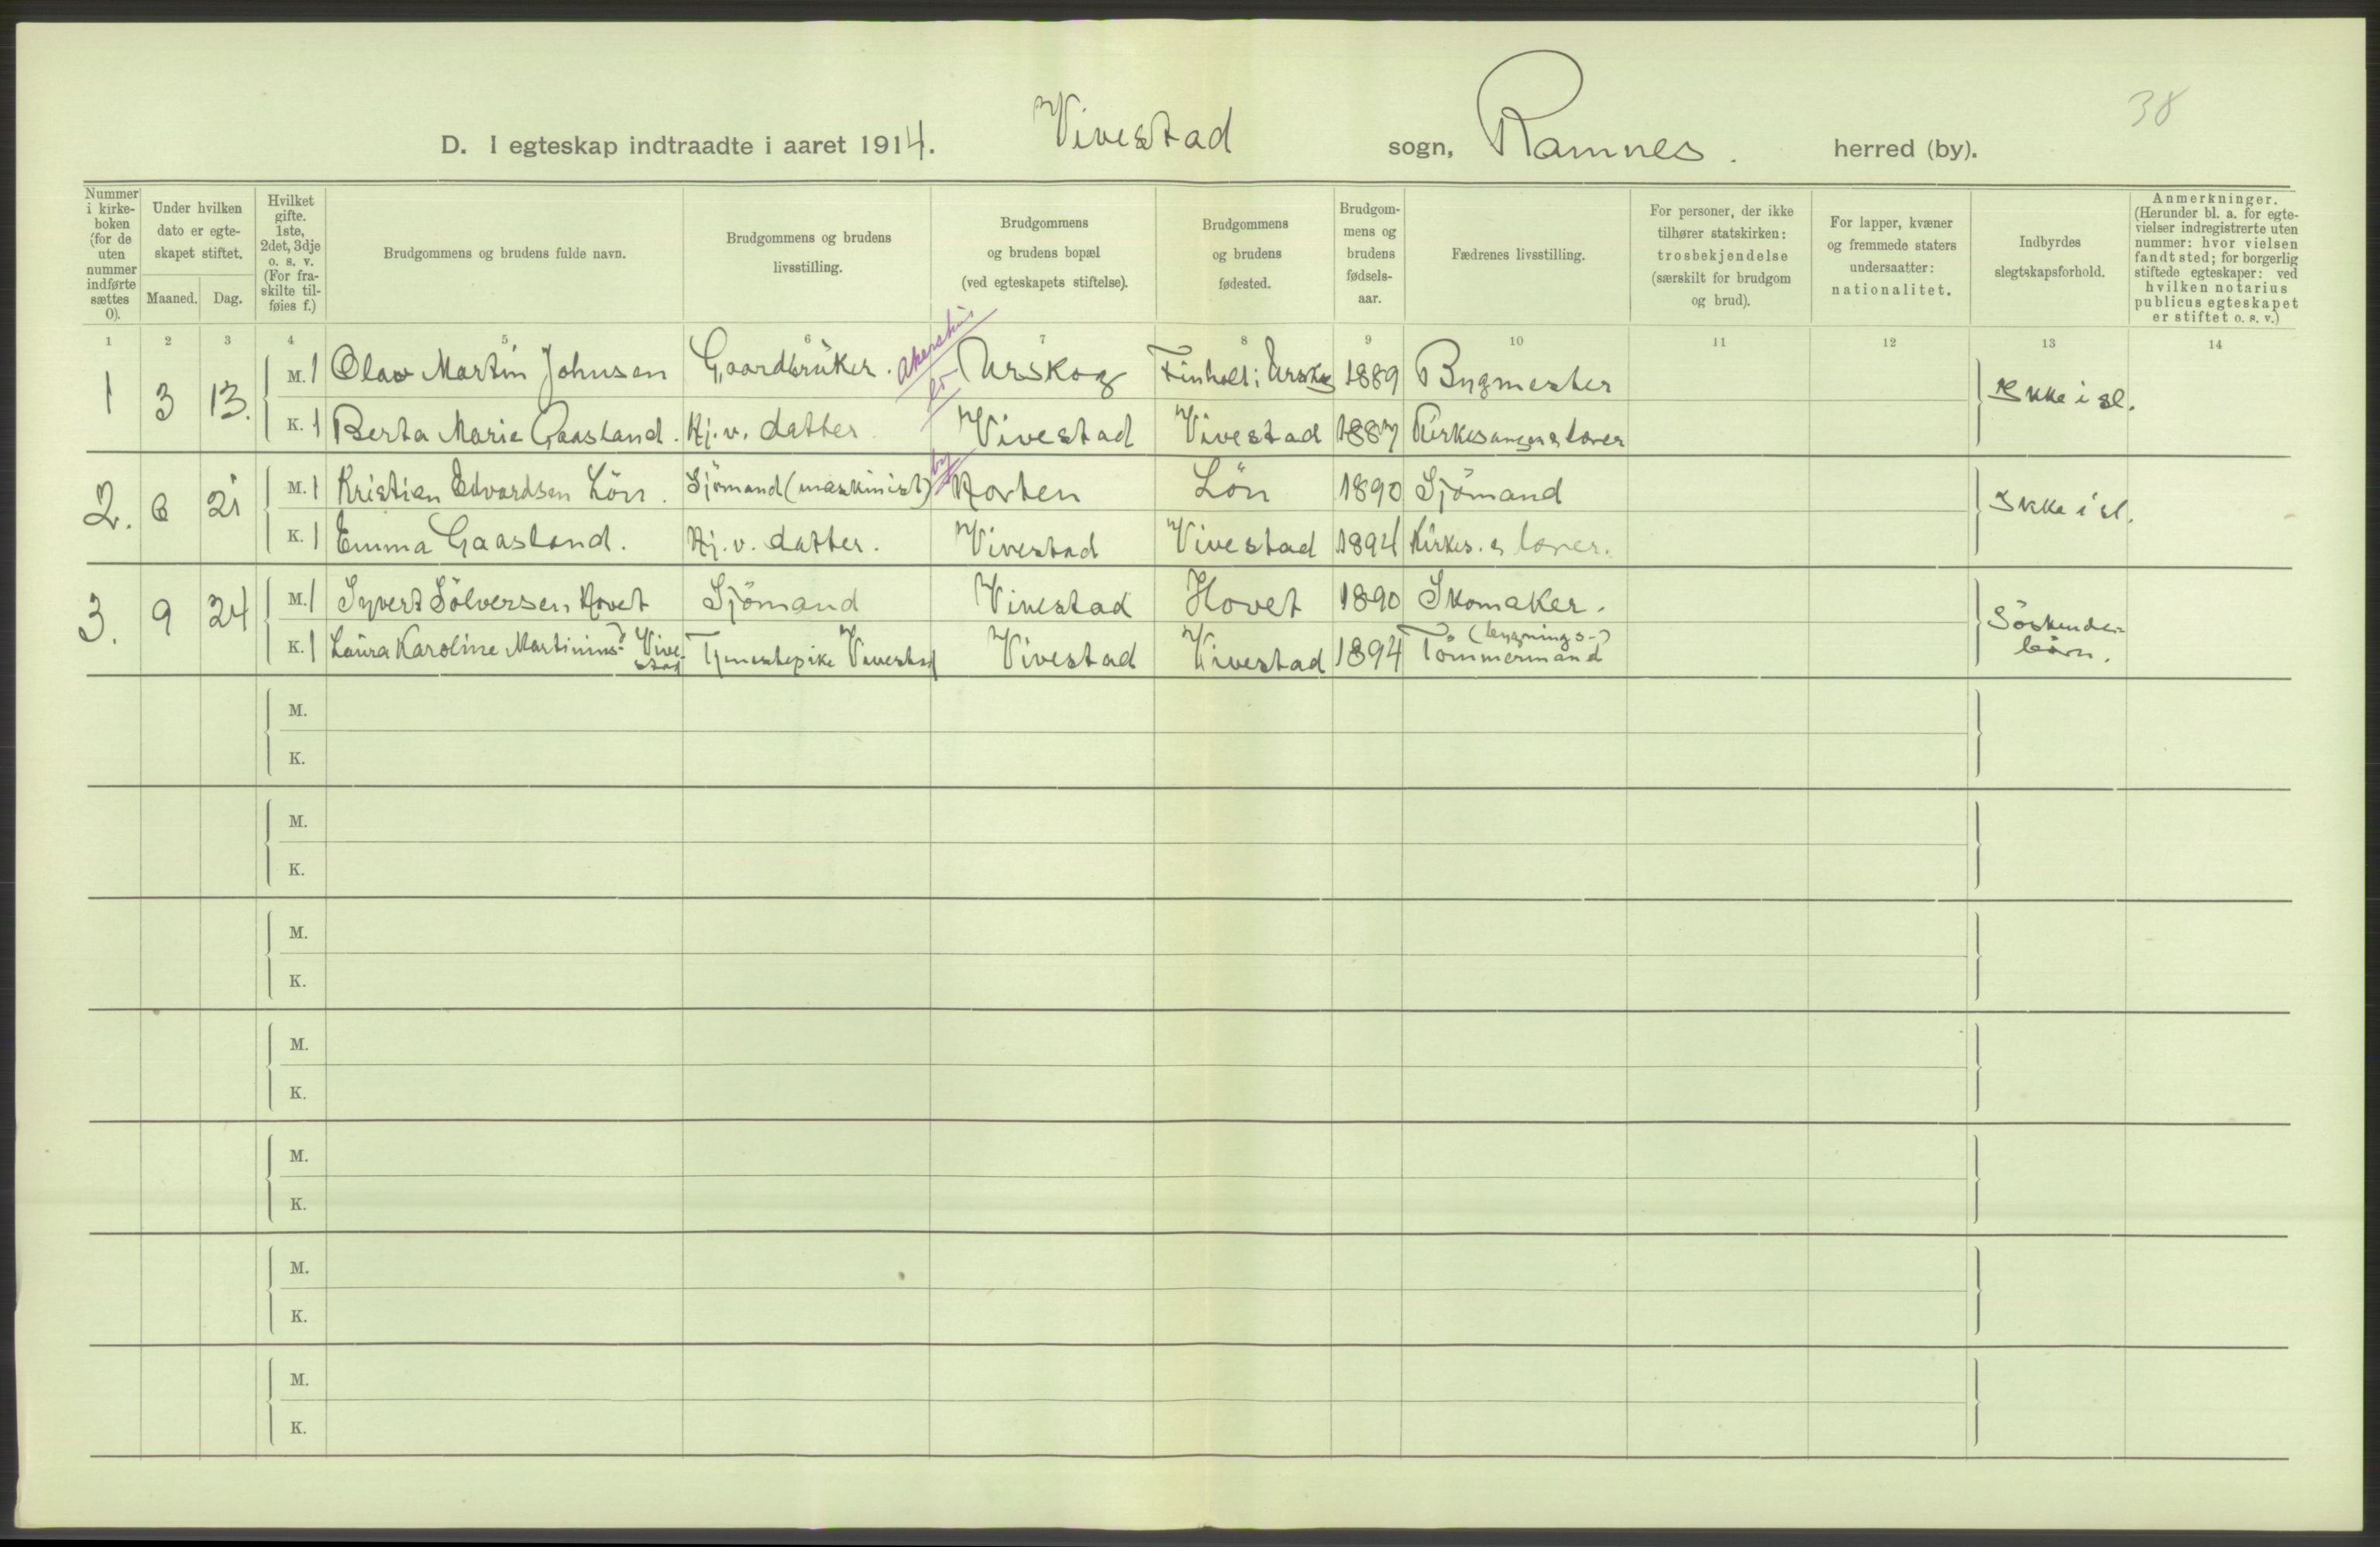 38
D. I egteskap indtraadte i aaret 1914. Vivestad sogn, Ramnes. herred (by).
Nummer i kirke-boken (for de uten nummer indførte sættes 0).
Under hvilken dato er egte-skapet stiftet.
Maaned. Dag.
Hvilket gifte. 1ste, 2det, 3dje o. s. v. (For fra-skilte til-føies f.)
Brudgommens og brudens fulde navn.
Brudgommens og brudens livsstilling.
Brudgommens og brudens bopæl (ved egteskapets stiftelse).
Brudgommens og brudens fødested.
Brudgom-mens og brudens fødsels-aar.
Fædrenes livsstilling.
For personer, der ikke tilhører statskirken: trosbekjendelse (særskilt for brudgom og brud).
For lapper, kvæner og fremmede staters undersaatter: nationalitet.
Indbyrdes slegtskapsforhold.
Anmerkninger. (Herunder bl. a. for egte-vielser indregistrerte uten nummer: hvor vielsen fandt sted; for borgerlig stiftede egteskaper: ved hvilken notarius publicus egteskapet er stiftet o. s. v.)
1 2 3 4 5 6 7 8 9 10 11 12 13 14
Akershus
1 3 13. M. 1 Olav Martin Johnsen Gaardbruker. Urskog Finholt i Urskog 1889 Bygmester Ikke i sl.
K. 1 Berta Marie Gaasland. Hj. v. datter. Vivestad Vivestad 1887 Kirkesanger & lærer
by
2. 6 21 M. 1 Kristian Edvardsen Lön. Sjömand (maskinist) Horten Lön 1890 Sjömand Ikke i sl.
K. 1 Emma Gaasland. Hj. v. datter. Vivestad Vivestad 1894 Kirkes. & lærer.
3. 9 24 M. 1 Syvert Sölversen Hovet Sjömand Vivestad Hovet 1890 Skomaker. Söskende-
K. 1 Laura Karoline Martinius- Vive- Tjenestepike Vivestad Vivestad Vivestad 1894 (bygnings-) Tömmermand börn.
stad
M.
K.
M.
K.
M.
K.
M.
K.
M.
K.
M.
K.
M.
K.